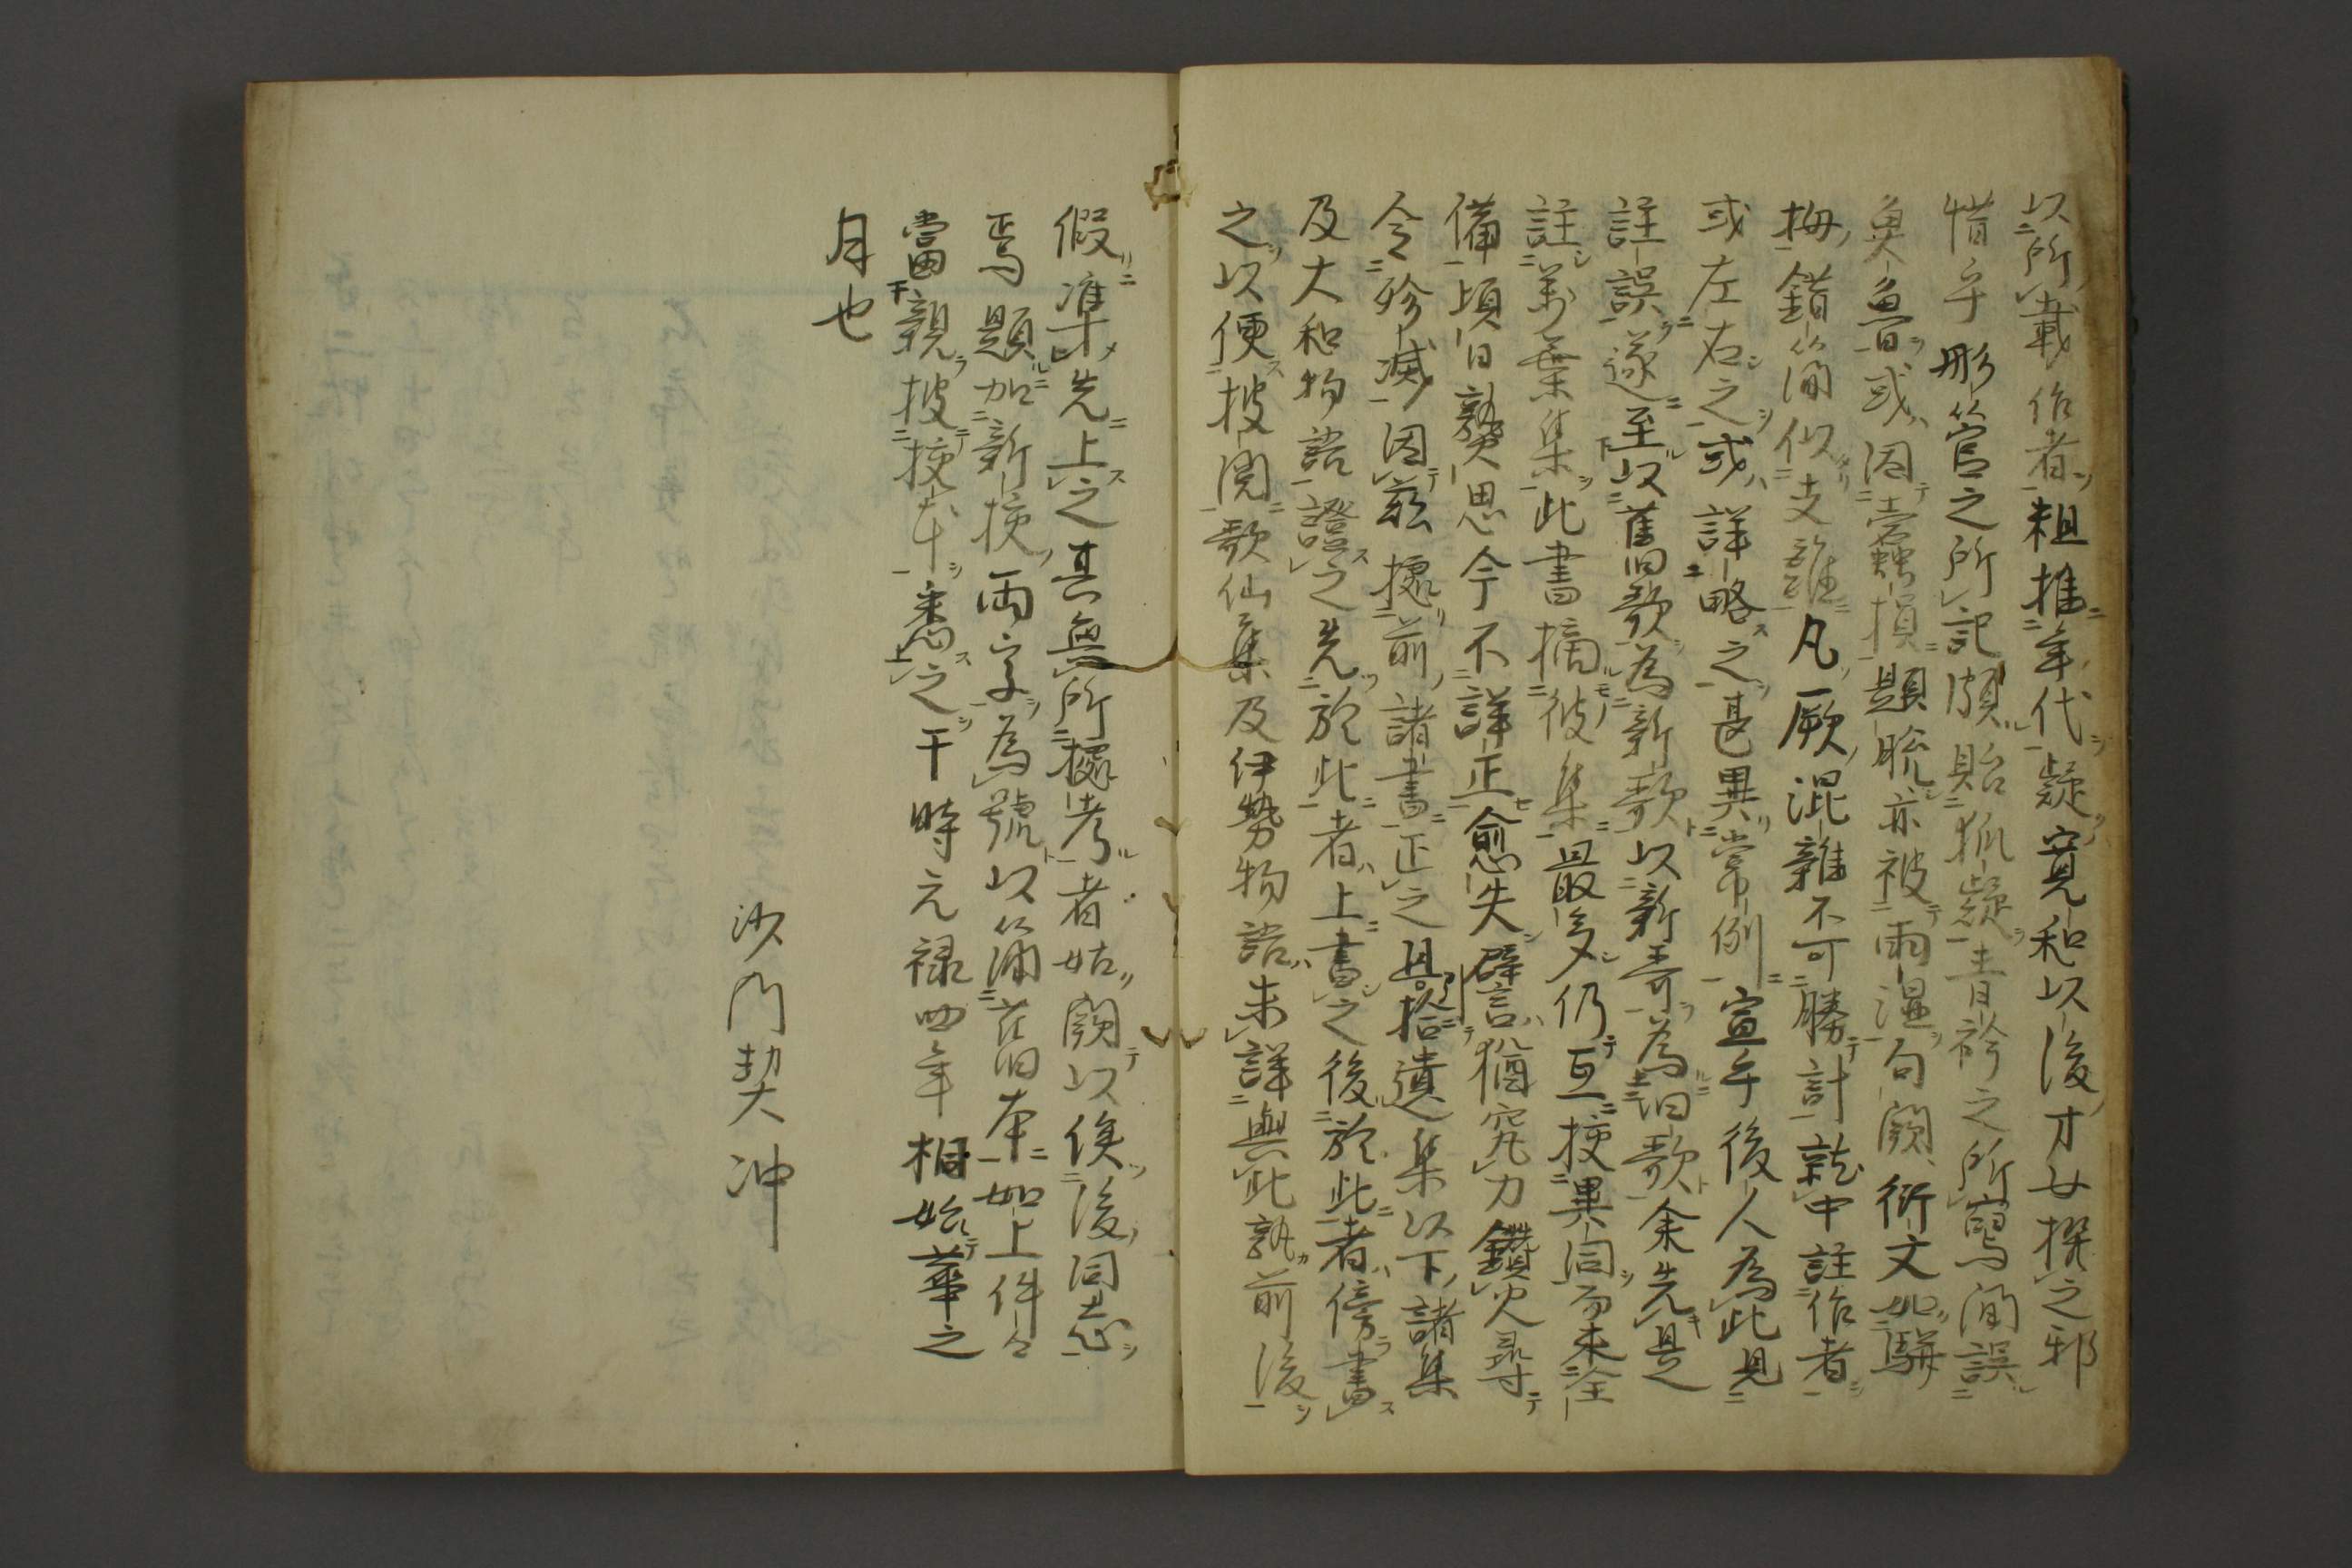 以所載作者粗推年代疑寛和以後才女撰之邪
惜乎彤管之所記頗貽狐疑青衿之所寫間誤
魚魯或因蠧損題脱亦被雨湿句闕衍文如駢
拇錯簡似支離凡厥混雜不可勝計就中註作者
或左右之或詳略之甚異常例宣乎後人為此見
註誤遂至以舊歌為新歌以新哥為旧歌余先是
註萬葉集此書摘彼集最多仍互挍異同而未全
備頃日熟思今不詳正愈失譬言猶究力鑽火尋
令殄滅因茲據前諸書正之且拾遺集以下諸集
及大和物語證之先於此者上書之後於此者傍書
之以便披閲歌仙集及伊勢物語未詳與此孰前後
假準先上之其無所據考者姑闕以俟後同志
焉題加新挍兩字為號以簡舊本如上件々
當親披挍本悉之干時元禄四年相始華之
月也
沙門契沖